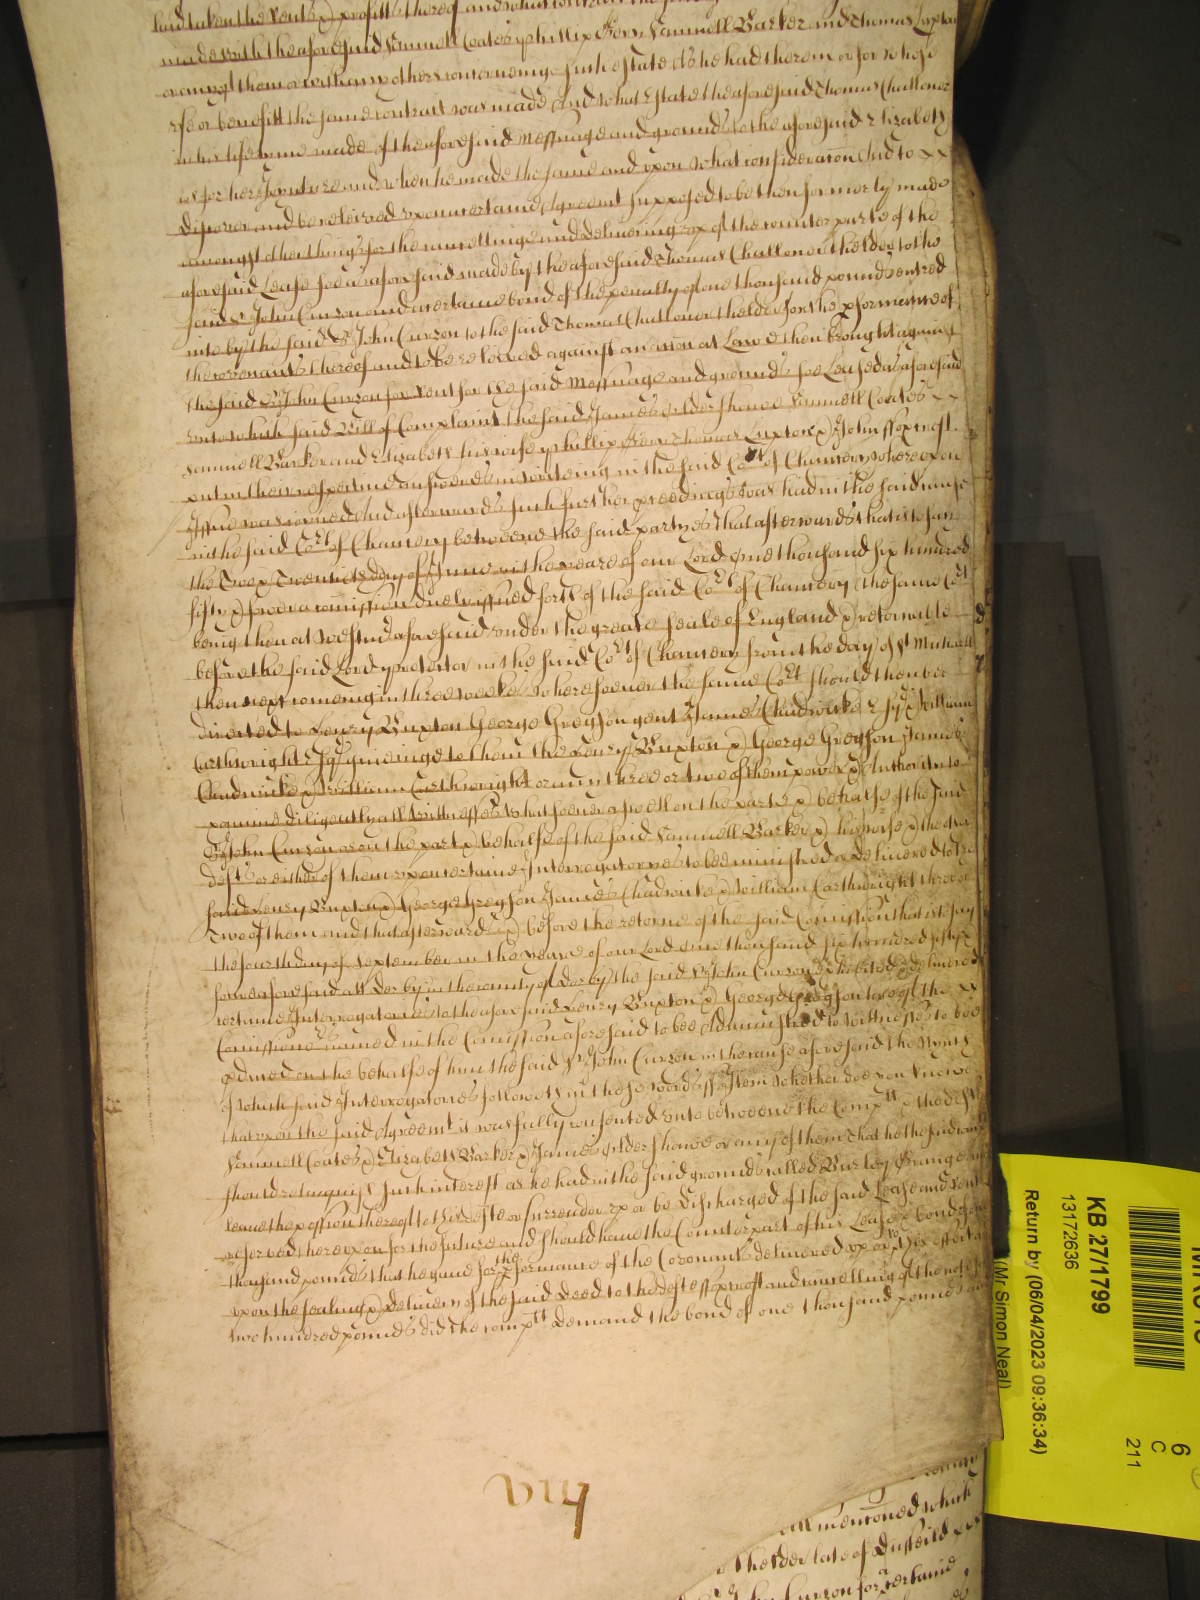 had taken the Rents & profitts thereof and what contract the same
made with the aforesaid Samuell Coates phillip Gery Samuell Barker and Thomas Lupton
or any of them or with any others concerneinge such estate as he had therein or for whose
use or benefitt the same contract was made And what Estate the aforesaid Thomas Challoner
in his life time made of the aforesaid Messuage and grounds to the aforesaid Elizabeth
as for her Joynture and when he made the same and upon what consideracon And to
discover and be releived upon certaine Agreemt supposed to be then formerly made
amongst other things for the cancellinge and delivering up of the counterparte of the
aforesaid Lease soe as aforesaid made by the aforesaid Thomas Challoner thelder to the
said Sr John Curzon and a certaine bond of the penalty of one thousand pounds entred
into by the said Sr John Curzon to the said Thomas Challoner thelder for the pformance of
the covenants thereof and to be releived against an accon at Lawe then brought against
the said Sr John Curzon for Rent for the said Messuage and grounds soe Leased as aforesaid
unto which said Bill of Complaint the said James Gildershawe Samuell Coates
Samuell Barker and Elizabeth his wife phillip Gery Thomas Lupton & John ffoxcroft
put in their respective answeres in writeing in the said Cort of Chancery whereupon
Issue was ioyned And afterwards such further pceedings was had in the said cause
in the said Cort of Chancery betweene the said partyes That afterwards that is to say
the Two & Twentieth day of June in the yeare of our Lord one thousand six hundred
fifty & fower a comission duely issued forth of the said Cort of Chancery the same Cort
being then at Westmr aforesaid under the greate seale of England & retornable
before the said Lord protector in the said Cort of Chancery from the day of St Michaell
then next comeing in three weekes wheresoever the same Cort should then bee
directed to Henry Buxton George Gregson gent James Chadwicke Esqr & William
Carthwright Esqr giveinge to them the Henry Buxton & George Gregson James
Chadwicke & William Carthwright or any three or two of them power & Authority to
examine diligently all wittnesses whatsoever aswell on the parte & behalfe of the said
Sr John Curzon as on the part & behalfe of the said Samuell Barker & his wife & the other
defts or either of them upon certaine Interrogatoryes to bee ministred or delivered to the
said Henry Buxton & George Gregson James Chadwicke & William Carthwright three or
Two of them and that afterwards & before the retorne of the said Comission that is to say
the fourth day of September in the yeare of our Lord one thousand six hundred fifty &
fower aforesaid att Derby in the county of Derby the said Sr John Curzon exhibited & delivered
certaine Interrogatories to the aforesaid Henry Buxton & George Gregson two of the
Comissionrs named in the Comission aforesaid to bee Administred to wittnesses to bee
pduced on the behalfe of him the said Sr John Curzon in the cause aforesaid the Ninth
of which said Interrogatories followeth in these words ff Item whether doe you knowe
that upon the said Agreemt it was fully consented unto betweene the Complt & the defts
Samuell Coates & Elizabeth Barker & James Gildershawe or any of them That he the said complt
should relinquish such interest as he had in the said grounds called Burley Grange and
leave the possion thereof to the defte or surrender up or be discharged of the said Lease and rent
reserved thereupon for the future and should have the Counterpart of his Lease & bond of one
thousand pounds that he gave for the pformance of the Covenants delivered up or to that effect
upon the sealing & delivery of the said Deed to the deft ffoxcroft and cancelling of the note of
two hundred pounds did the complt Demand the bond of one thousand pounds
viij
mentoned which
thelder late of Duffeild
John Curzon for a certaine
KB 27/1799
13172636
Return by (06/04/2023 09:36:34)
(Mr Simon Neal)
6
C
211